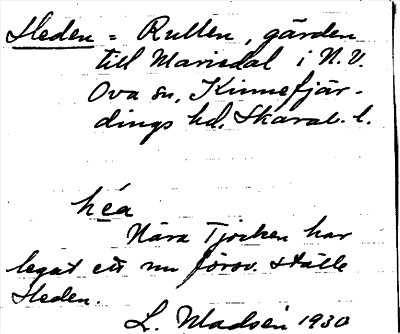 Heden = Rullen, gärden
till Mariedal i N.V.
Ova sn, Kinnefjär-
dings hd. Skarab. l.
héa
Nära Tjocken har
legat ett nu försv. ställe
Heden.
L. Madsén 1930